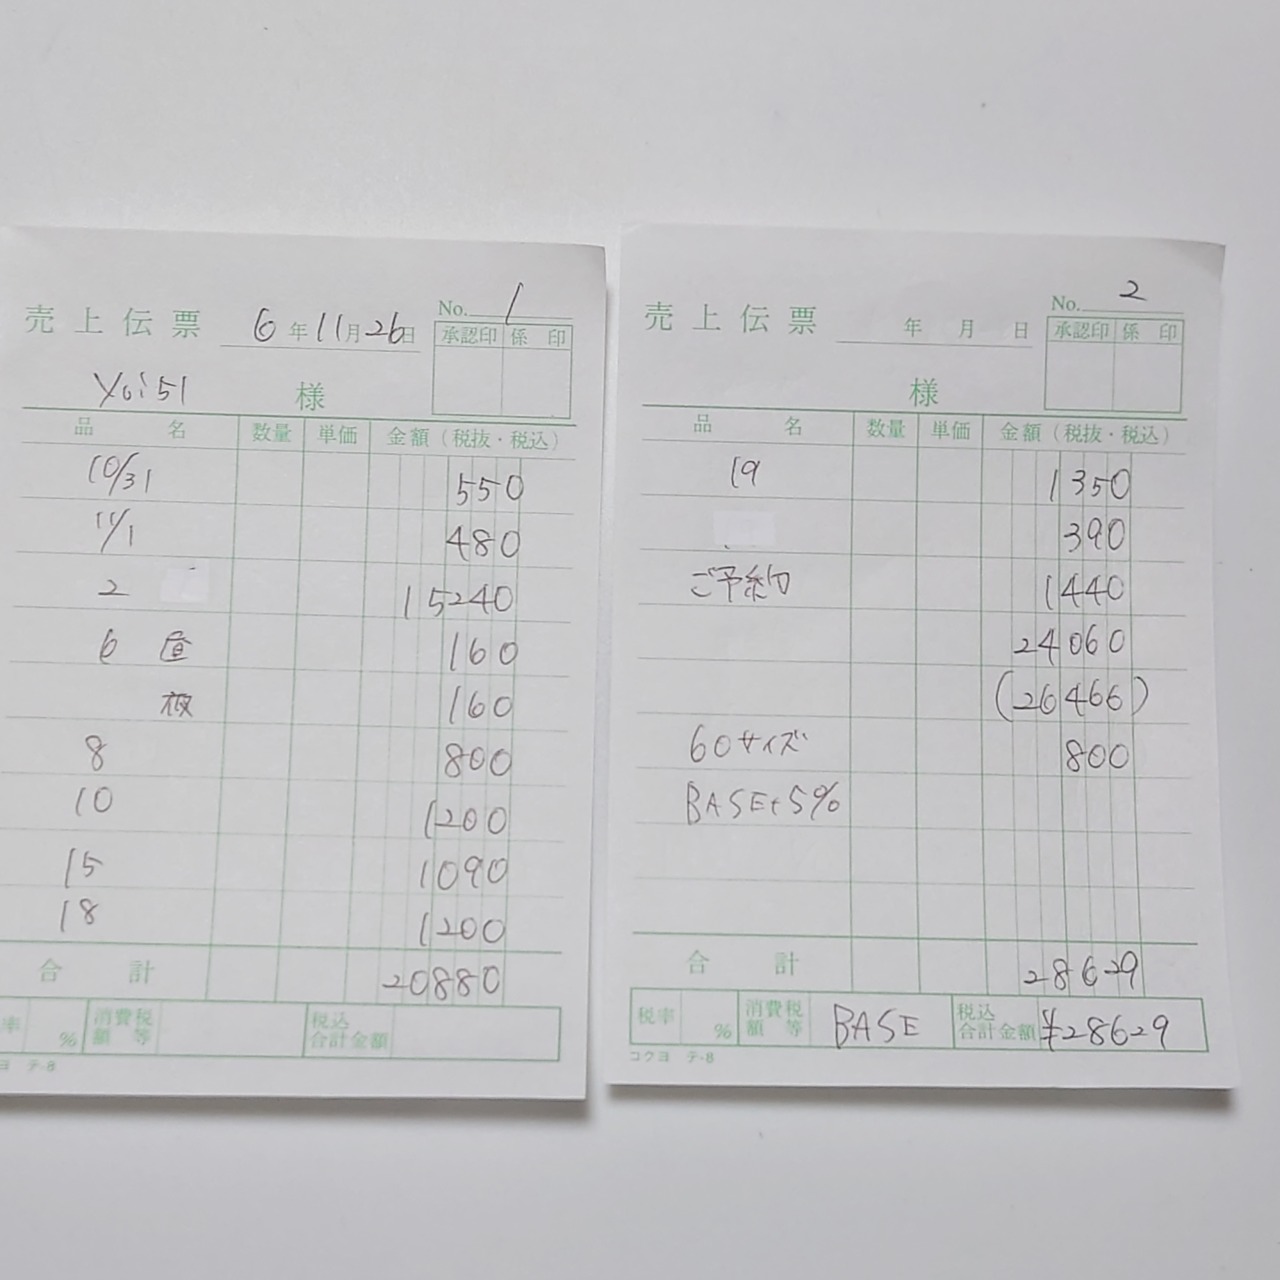 売上伝票 6年11月26日 No. 1
承認印 係印
yoi51 様
品名 数量 単価 金額(税抜・税込)
10/31 550
11/1 480
2 15240
6 昼 160
夜 160
8 800
10 1200
15 1090
18 1200
合計 20880
率 % 消費税額等 税込合計金額
ヨ テ-8
売上伝票 年 月 日 No. 2
承認印 係印
様
品名 数量 単価 金額(税抜・税込)
19 1350
390
ご予約 1440
24060
(26466)
60サイズ 800
BASE+5%
合計 28629
税率 % 消費税額等 BASE 税込合計金額 ¥28629
コクヨ テ-8